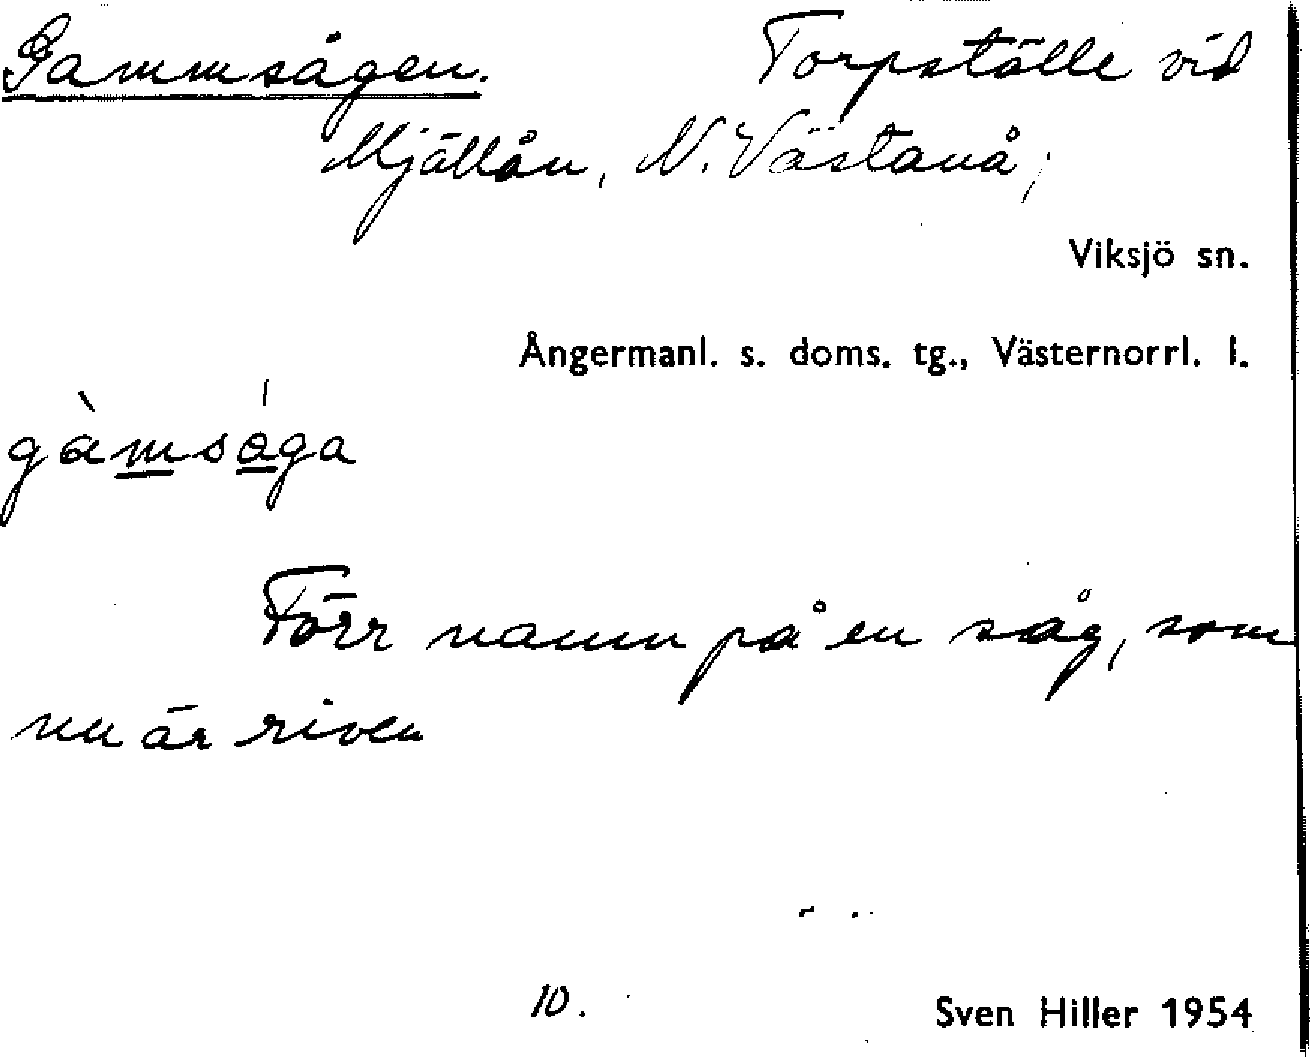 Gammsågen. Torpställe vid
Mjällån, N. Västanå;
Viksjö sn.
Ångermanl. s. doms. tg., Västernorrl. l.
gàmsága
Förr namn på en såg, som
nu är riven
10. Sven Hiller 1954